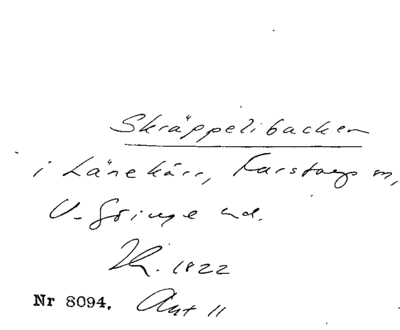 Skräppelibacken
i Länekärr, Karstorps
V. Göinge hd.
1822
Nr 8094. Ant 11